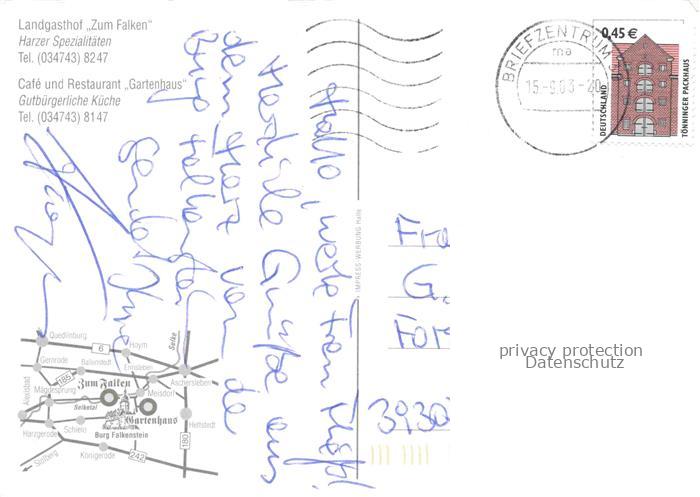 Landgasthof „Zum Falken"
Harzer Spezialitäten
Tel. (034743) 8247
Café und Restaurant „Gartenhaus"
Gutbürgerliche Küche
Tel. (034743) 8147
BRIEFZENTRUM
ma
15.-9.03-20
0,45 €
DEUTSCHLAND
TÖNNINGER PACKHAUS
Hallo, liebe Frau
Herzliche Grüße aus
dem Harz von de
Burg Falkenstein
sendet Ihnen
IMPRESS-WERBUNG Halle
Fra
G.
For
3930
privacy protection
Datenschutz
Quedlinburg
Selke
6
Hoym
Gernrode
Ballenstedt
Ermsleben
185
Aschersleben
Alexisbad
Mägdesprung
Zum Falken
Meisdorf
Selketal
Gartenhaus
Hettstedt
Harzgerode
Schielo
Burg Falkenstein
180
Königerode
242
Stolberg